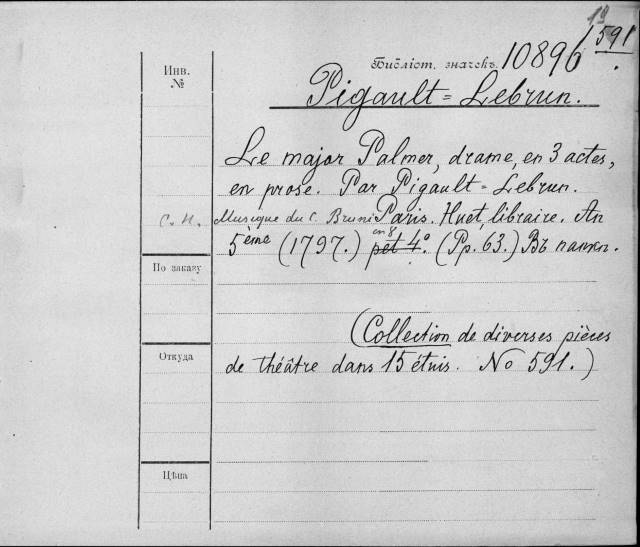 18
591
Библіот. значекъ 10896
Инв.
№
Pigault=Lebrun.
Le major Palmer, drame, en 3 actes,
en prose. Par Pigault=Lebrun.
С. Н. Musique du C. Bruni Paris. Huet, libraire. An
5ème (1797.) pet 4°. en 8° (Pp. 63.) Въ папкѣ.
По заказу
(Collection de diverses pièces
Откуда
de théâtre dans 15 étuis. No 591.)
Цѣна